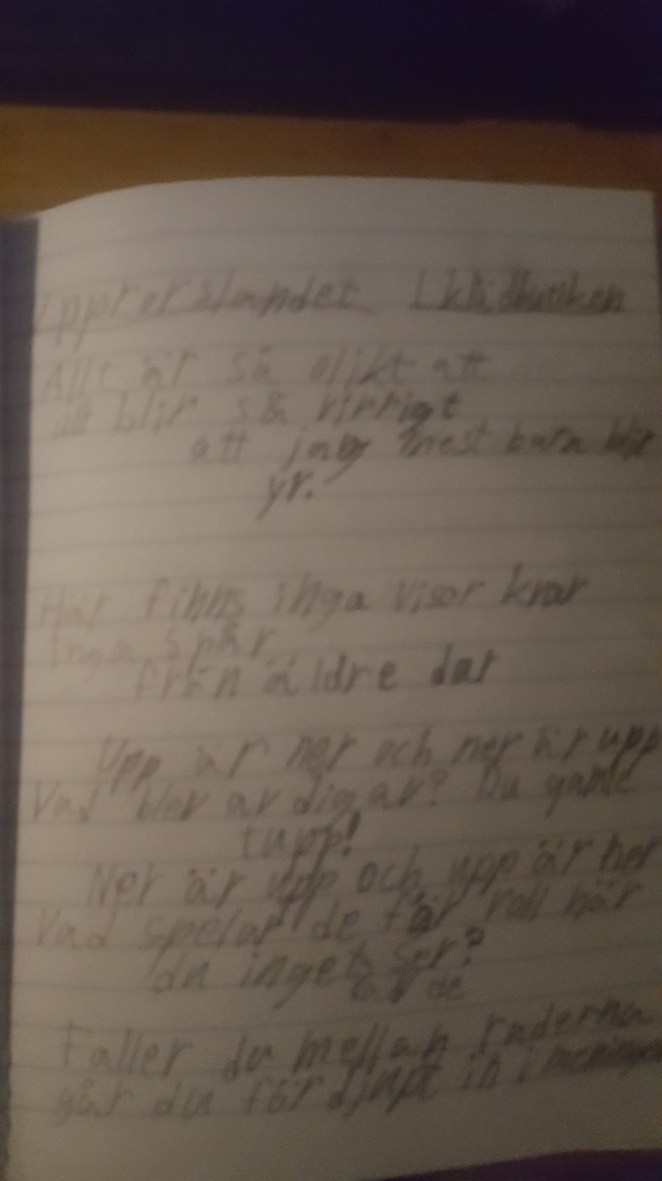 Uppror ståndet I klädbutiken
Allt är så olikt att
allt blir så virrigt
att jag mest bara blir
yr.
Här finns inga visor kvar
Inga spår
från äldre dar
Upp är ner och ner är upp
Vad blev av dig ar? Du gamle
tupp!
Ner är upp och upp är ner
Vad spelar de för roll när
du inget ser?
av de
Faller du mellan raderna
går du för djupt in i meningen